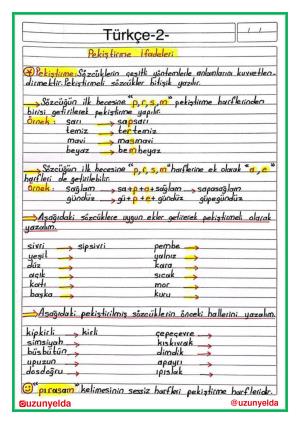 Türkçe-2-
Pekiştirme İfadeleri
Pekiştirme: Sözcüklerin çeşitli yöntemlerle anlamlarını kuvvetlen-
dirmektir. Pekiştirmeli sözcükler bitişik yazılır.
Sözcüğün ilk hecesine "p,r,s,m" pekiştirme harflerinden
birisi getirilerek pekiştirme yapılır.
Örnek: sarı → sapsarı
temiz → tertemiz
mavi → masmavi
beyaz → bembeyaz
Sözcüğün ilk hecesine "p,r,s,m" harflerine ek olarak "a,e"
harfleri de getirilebilir.
Örnek: sağlam → sa+p+a+sağlam → sapasağlam
gündüz → gü+p+e+gündüz güpegündüz
Aşağıdaki sözcüklere uygun ekler getirerek pekiştirmeli olarak
yazalım.
sivri → sipsivri pembe →
yeşil → yalnız →
düz → kara →
açık → sıcak →
katı → mor →
başka → kuru →
Aşağıdaki pekiştirilmiş sözcüklerin önceki hallerini yazalım.
kipkirli → kirli çepeçevre →
simsiyah → kıskıvrak →
büsbütün → dimdik →
upuzun → apayrı →
dosdoğru → ıpıslak →
"pırasam" kelimesinin sessiz harfleri pekiştirme harfleridir.
@uzunyelda @uzunyelda